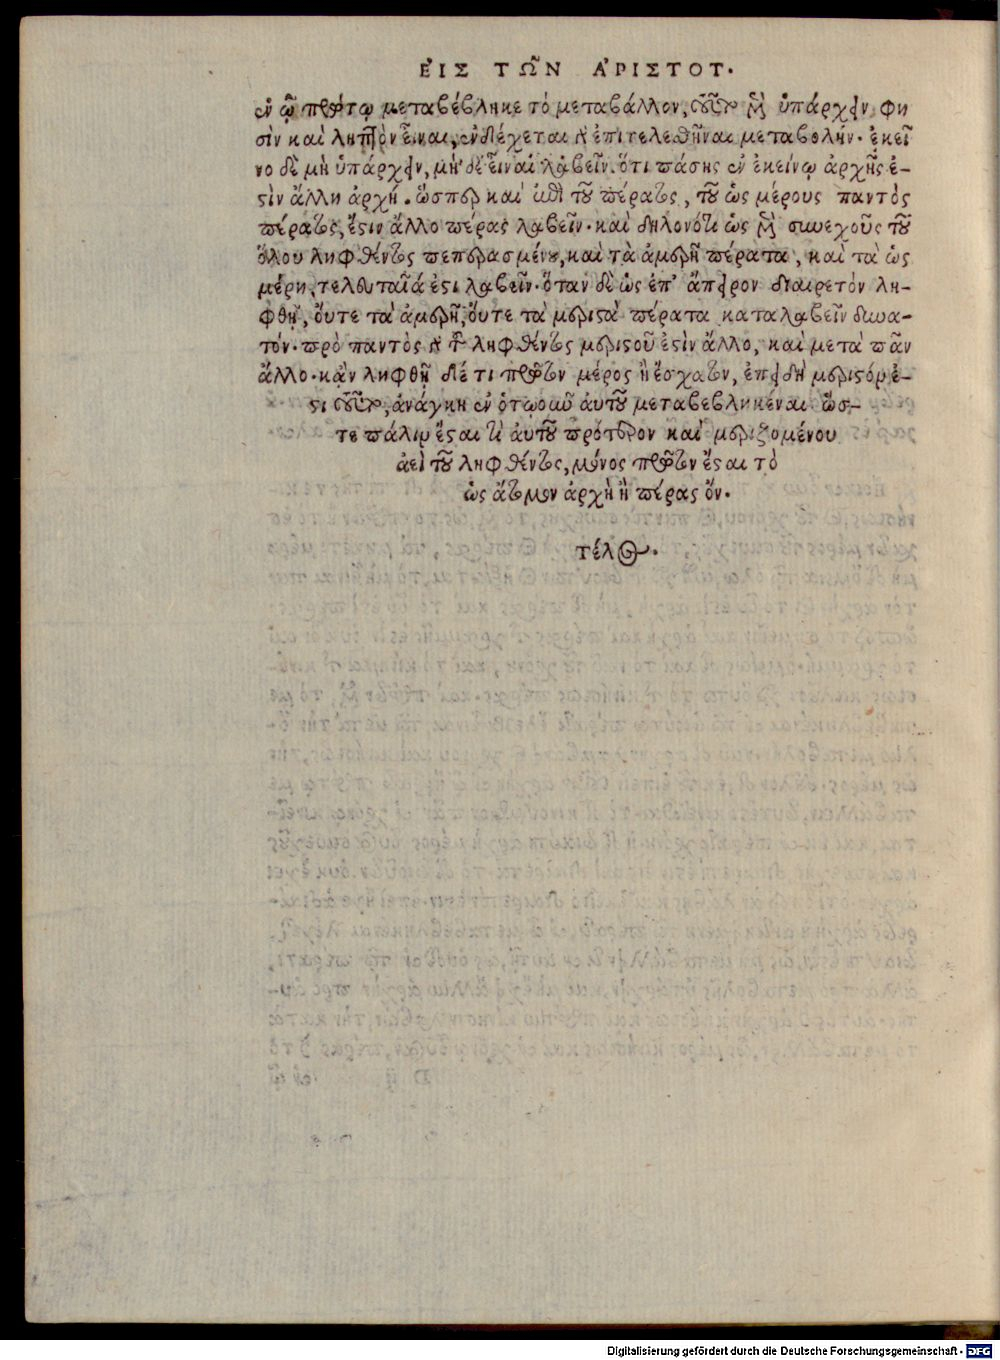 ΕἸΣ ΤΩ͂Ν ἈΡΙΣΤΟΤ.
ἐν ᾧ πρώτῳ μεταβέβληκε τὸ μεταβάλλον, τοῦτο μὲν ὑπάρχειν φη
σὶν καὶ ληπτὸν εἶναι, ἐνδέχεται γὰρ ἐπιτελεσθῆναι μεταβολὴν. ἐκεῖ
νο δὲ μὴ ὑπάρχειν, μὴ δὲ εἶναι λαβεῖν. ὅτι πάσης ἐν ἐκείνῳ ἀρχῆς ἐ-
στὶν ἄλλη ἀρχή. ὥσπερ καὶ ἐπὶ τοῦ πέρατος, τοῦ ὡς μέρους παντὸς
πέρατος, ἔστιν ἄλλο πέρας λαβεῖν. καὶ δηλονότι ὡς μὲν συνεχοῦς τοῦ
ὅλου ληφθέντος πεπερασμένου, καὶ τὰ ἀμερῆ πέρατα, καὶ τὰ ὡς
μέρη, τελευταῖά ἐστι λαβεῖν. ὅταν δὲ ὡς ἐπ' ἄπειρον διαιρετὸν λη-
φθῇ, οὔτε τὰ ἀμερῆ, οὔτε τὰ μεριστὰ πέρατα καταλαβεῖν δυνα-
τόν. πρὸ παντὸς γὰρ τοῦ ληφθέντος μεριστοῦ ἐστὶν ἄλλο, καὶ μετὰ πᾶν
ἄλλο. κἂν ληφθῇ δέ τι πρῶτον μέρος ἢ ἔσχατον, ἐπειδὴ μεριστόν ἐ-
στι τοῦτο, ἀνάγκη ἐν ὁτῳοῦν αὐτοῦ μεταβεβληκέναι. ὥσ-
τε πάλιν ἔσται τὶ αὐτοῦ πρότερον καὶ μεριζομένου
ἀεὶ τοῦ ληφθέντος, μόνος πρῶτον ἔσται τὸ
ὡς ἄτομον ἀρχὴ ἢ πέρας ὄν.
τέλος.
Digitalisierung gefördert durch die Deutsche Forschungsgemeinschaft - DFG